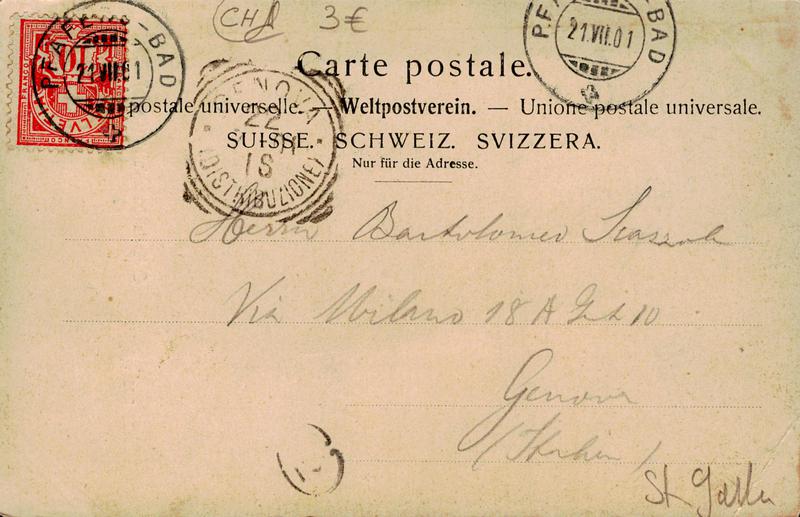 CHA 3€
PFÄFERS-BAD
21.VII.01
PF -BAD
21.VII.01
10
FRANCO
Carte postale.
postale universelle. — Weltpostverein. — Unione postale universale.
GENOVA
22
18
(DISTRIBUZIONE)
SUISSE. SCHWEIZ. SVIZZERA.
Nur für die Adresse.
Herrn Bartolomeo
Via Milano 18 A 10
Genova
(Italien)
St Gallen